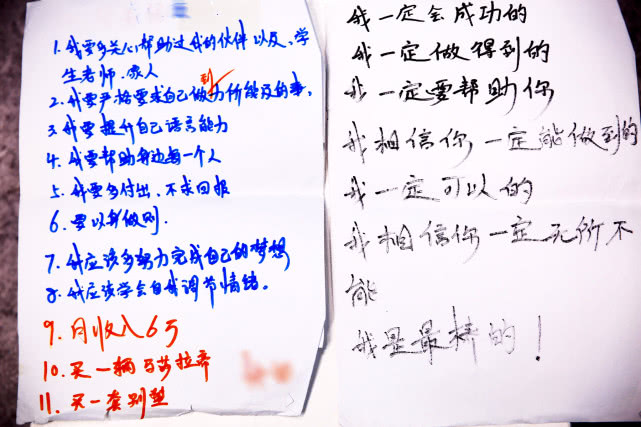 1. 我要多关心帮助过我的伙伴以及、学
生老师、家人
2. 我要严格要求自己做到力所能及的事。
3 我要提升自己语言能力
4. 我要帮助身边每一个人
5. 我要多付出、不求回报
6. 要以身做则.
7. 我应该多努力完成自己的梦想
8. 我应该学会自我调节情绪。
9. 月收入6万
10. 买一辆马莎拉蒂
11. 买一套别墅
我一定会成功的
我一定做得到的
我一定要帮助你
我相信你一定能做到的
我一定可以的
我相信你一定无所不
能
我是最棒的！